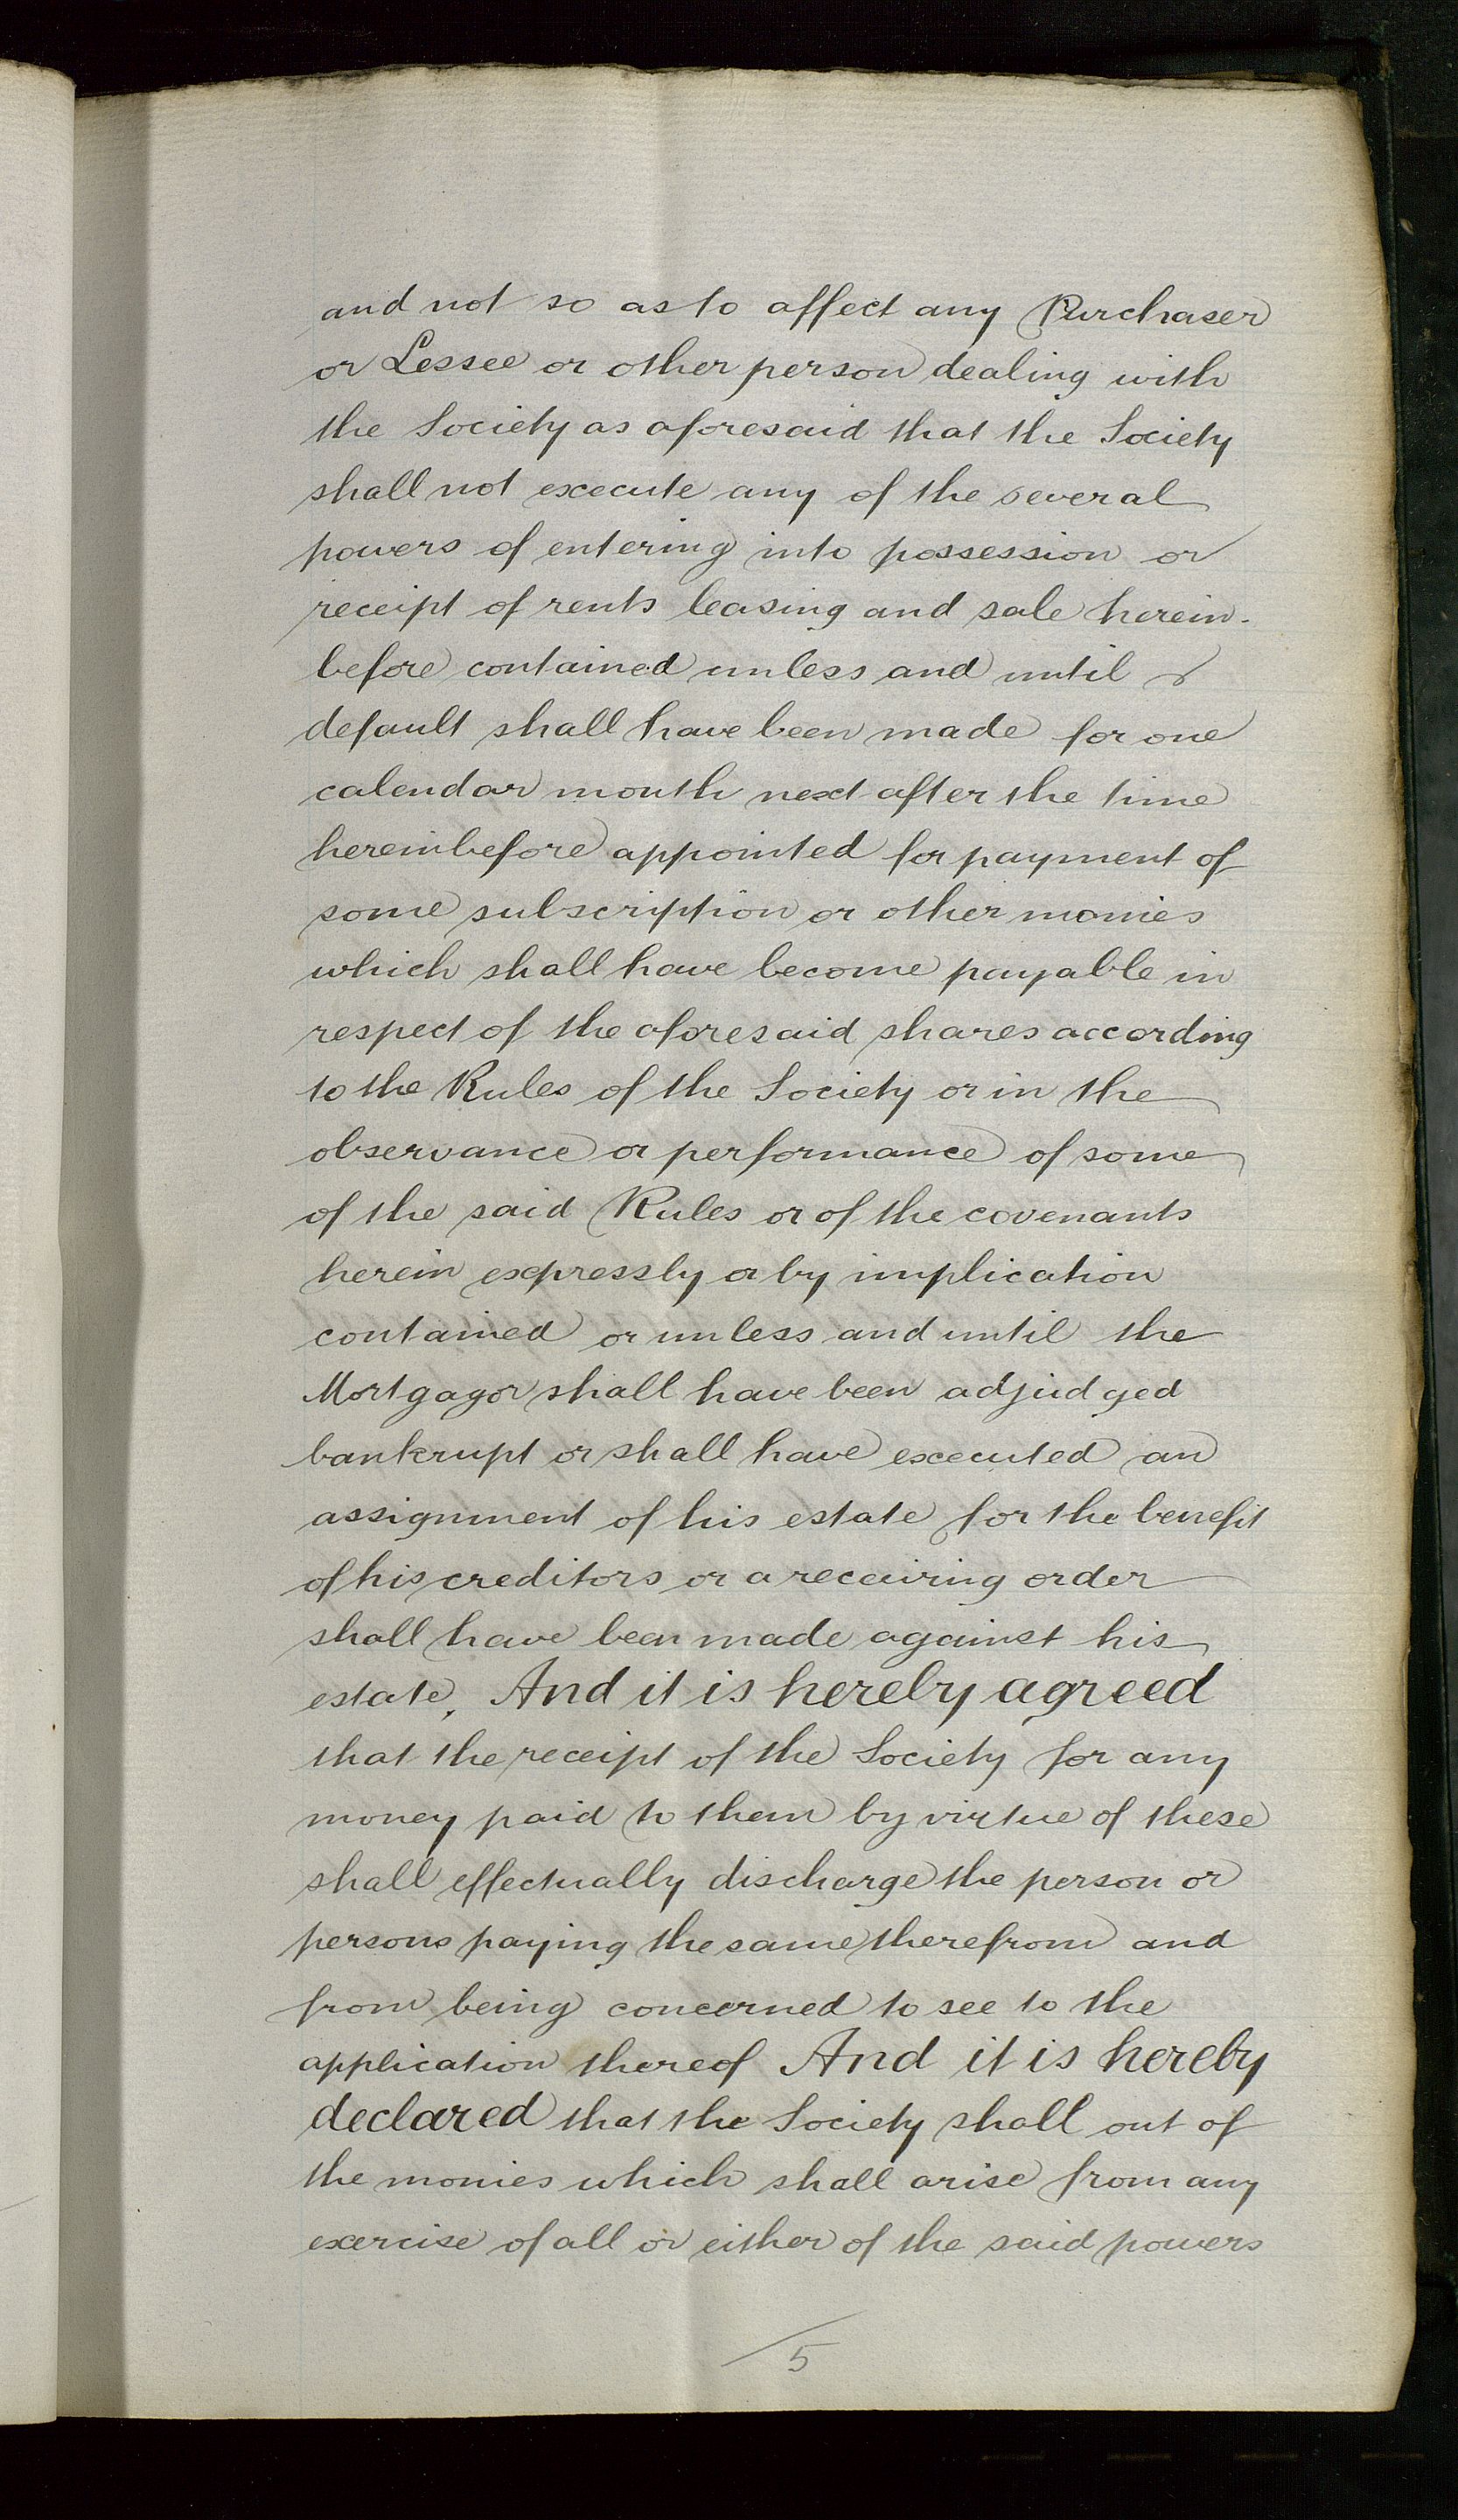 and not so as to affect any Purchaser
or Lessee or other person dealing with
the Society as aforesaid that the Society
shall not execute any of the several
powers of entering into possession or
receipt of rents leasing and sale herein-
before contained unless and until
default shall have been made for one
calendar month next after the time
hereinbefore appointed for payment of
some subscription or other monies
which shall have become payable in
respect of the aforesaid shares according
to the Rules of the Society or in the
observance or performance of some
of the said Rules or of the covenants
herein expressly or by implication
contained or unless and until the
Mortgagor shall have been adjudged
bankrupt or shall have executed an
assignment of his estate for the benefit
of his creditors or a receiving order
shall have been made against his
estate. And it is hereby agreed
that the receipt of the Society for any
money paid to them by virtue of these
shall effectually discharge the person or
persons paying the same therefrom and
from being concerned to see to the
application thereof And it is hereby
declared that the Society shall out of
the monies which shall arise from any
exercise of all or either of the said powers
5